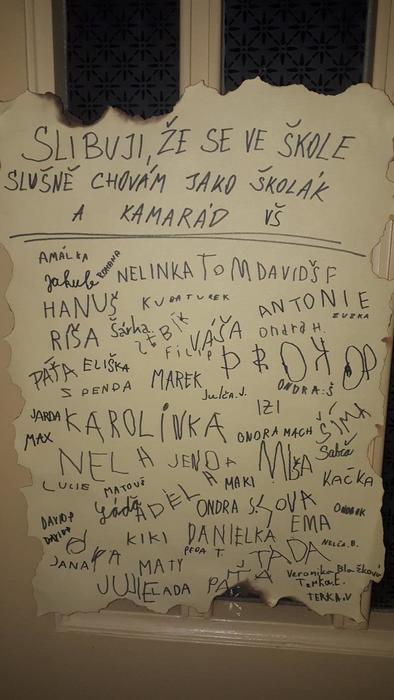 SLIBUJI, ŽE SE VE ŠKOLE
SLUŠNĚ CHOVÁM JAKO ŠKOLÁK
A KAMARÁD VŠ
AMÁLKA
Jakub ROMANA NELINKA TOM DAVID Š F
HANUŠ KUBATUREK ANTONIE
ZUZKA
RÍŠA Šárka ZEBÍK VÁŠA Ondra H.
FILIP PROKOP
PÁŤA ELIŠKA
SPENDA MAREK Julča.J. ONDRA.Š
JARDA KAROLÍNKA IZI ŠÍMA
MAX ONDRA MACH
NELA JENDA MÍŠA Sabča
LUCIE MATOUŠ MAKI KAČKA
Láďa ADÉLA ONDRA S. SOVA ONDREK
DAVID P
DAVID KIKI DANIELKA EMA
PEĎA T. NELČA.B.
JANA PA MATY TADA
JULIE ADA PAŤA Veronika Blažková
Terka.L.
TERKA.V